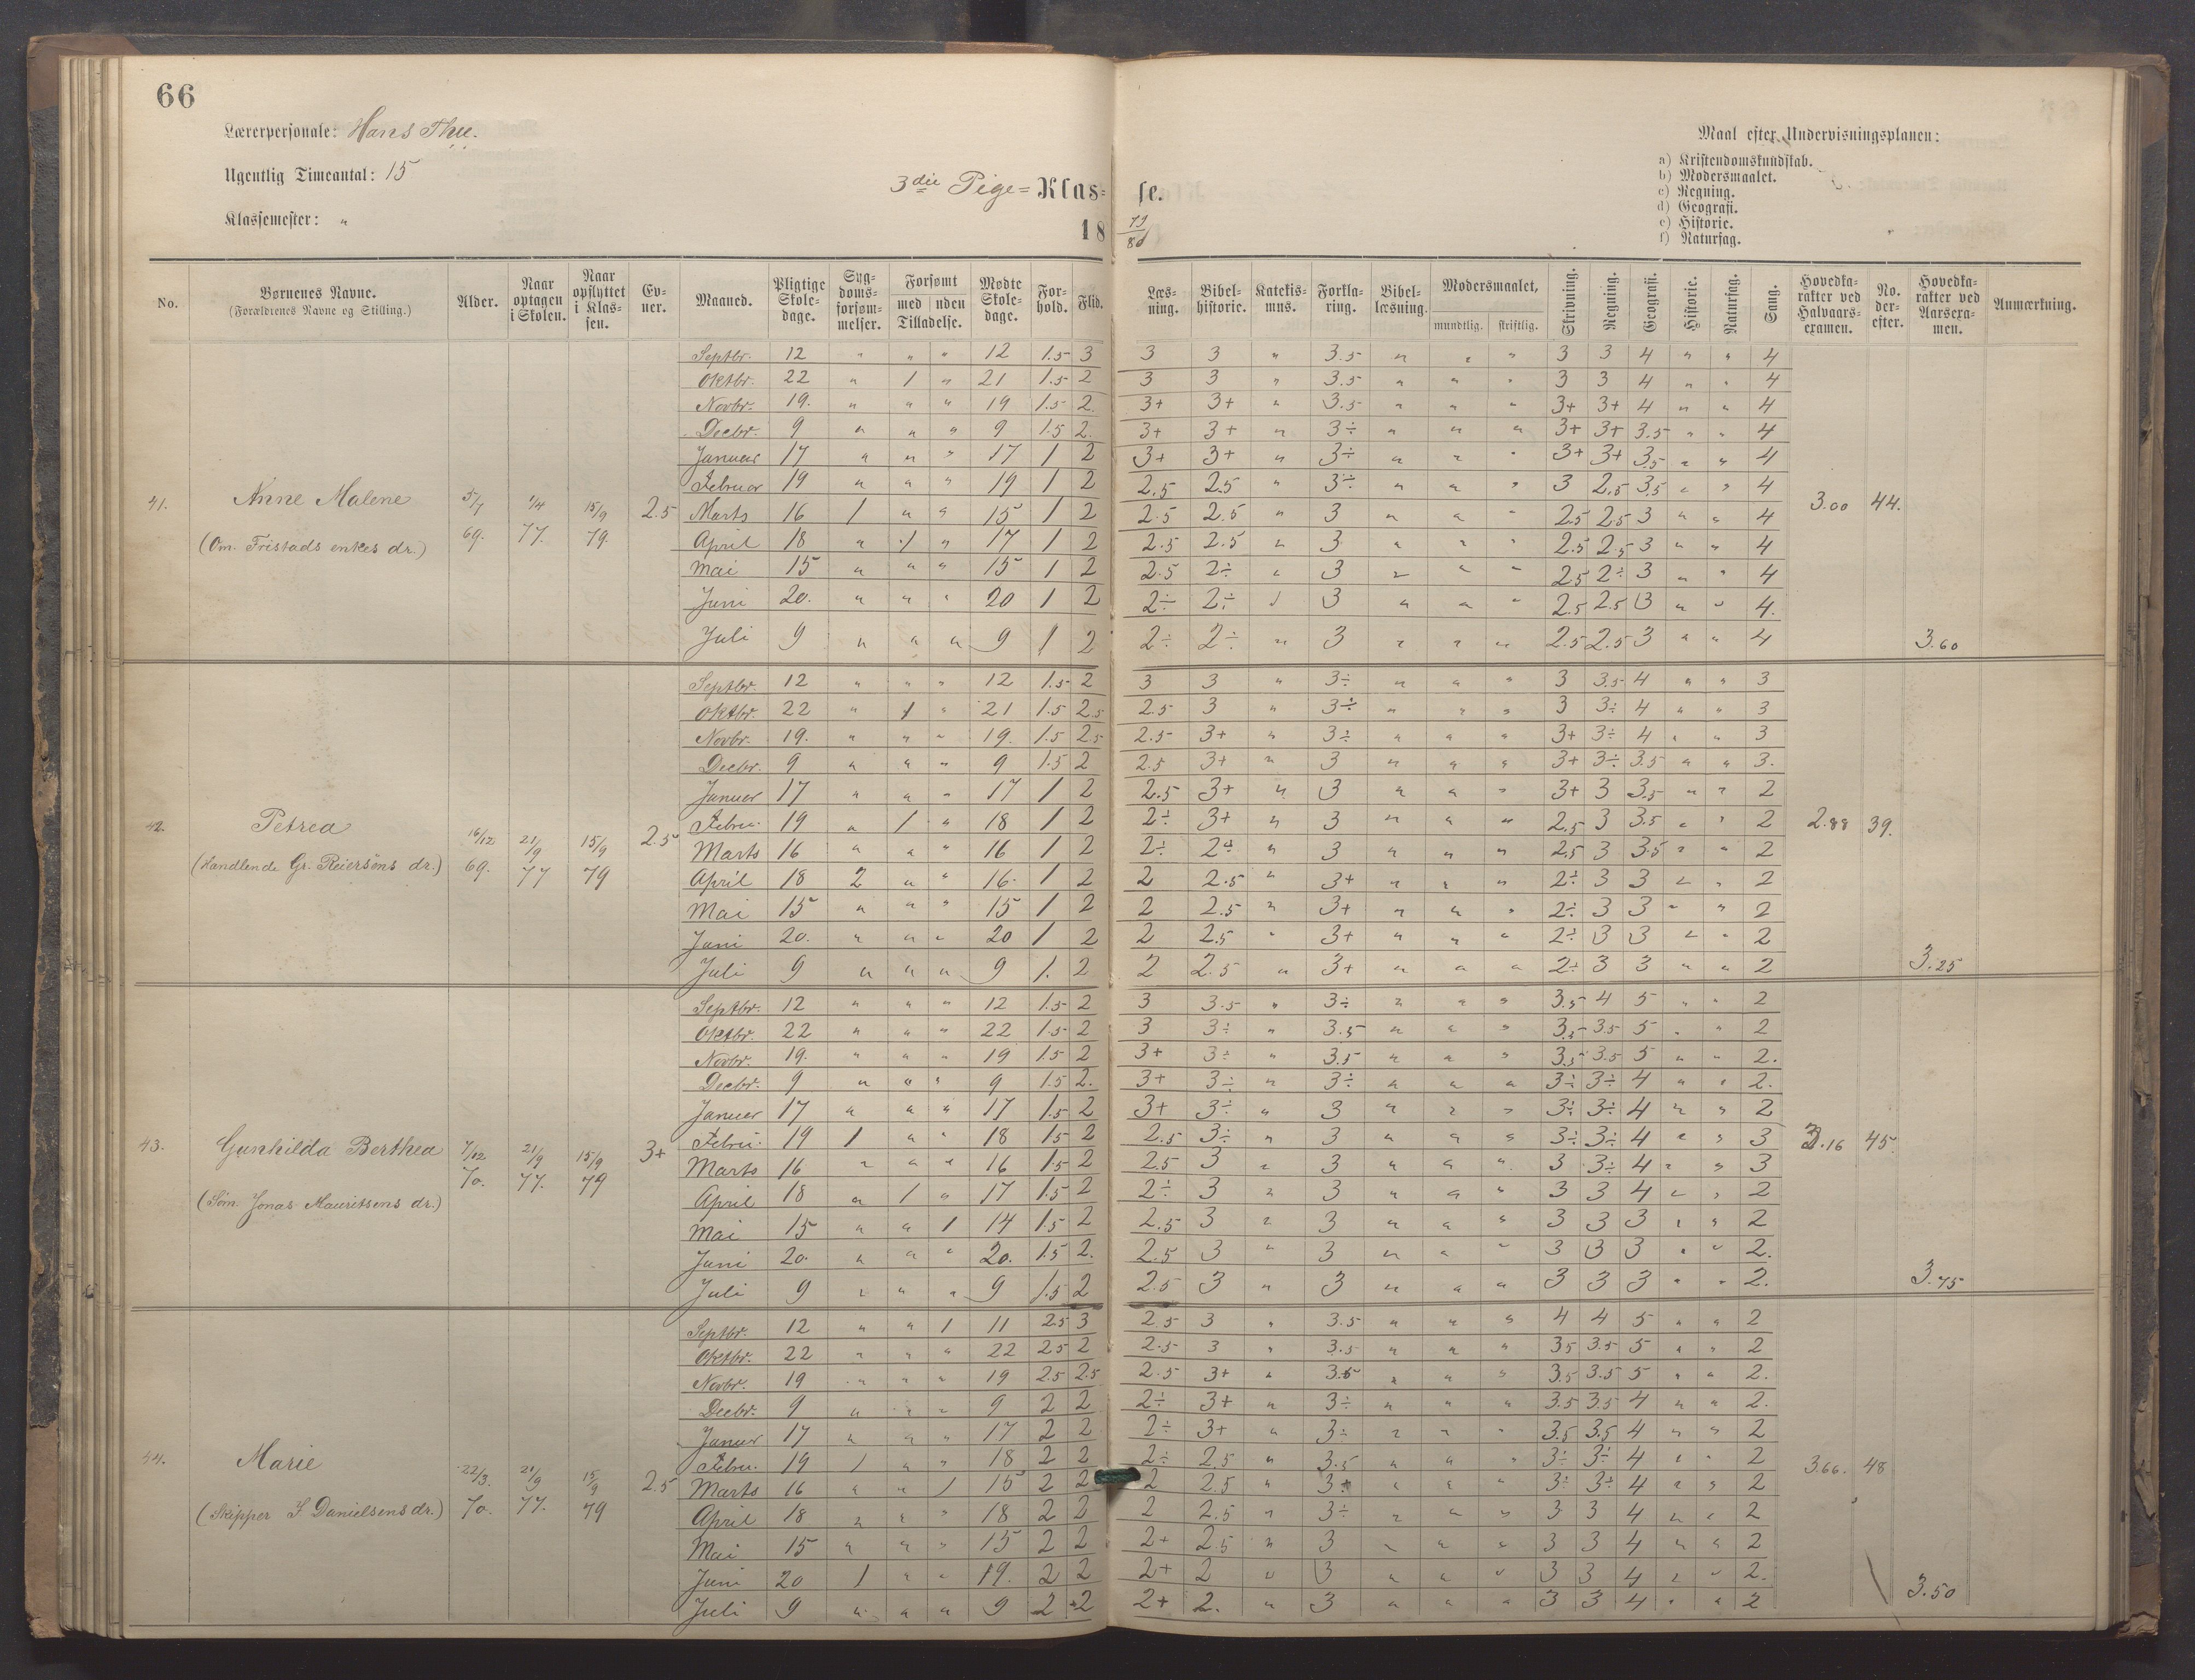 66
Lærerpersonale: Hans Thu.
Ugentlig Timeantal: 15
Klassemester: "
3die Pige= Klas= se.
18 79/80
Maal efter Undervisningsplanen:
a) Kristendomskundskab.
b) Modersmaalet.
c) Regning.
d) Geografi.
e) Historie.
f) Naturfag.
No. | Børnenes Navne. (Forældrenes Navne og Stilling.) | Alder. | Naar optagen i Skolen. | Naar opflyttet i Klassen. | Evner. | Maaned. | Pligtige Skoledage. | Sygdomsforsømmelser. | Forsømt med uden Tilladelse. | Mødte Skoledage. | Forhold. | Flid. | Læsning. | Bibelhistorie. | Katekismus. | Forklaring. | Bibellæsning. | Modersmaalet, mundtlig. skriftlig. | Skrivning. | Regning. | Geografi. | Historie. | Naturfag. | Sang. | Hovedkarakter ved Halvaarsexamen. | No. derefter. | Hovedkarakter ved Aarsexamen. | Anmærkning.
41. Anne Malene (Om. Fristads enkes dr.) 5/7 69. 1/4 77. 15/9 79. 2.5
Septbr. 12 " " " 12 1.5 3 3 3 " 3.5 " " " 3 3 4 " " 4
Oktbr. 22 " 1 " 21 1.5 2 3 3 " 3.5 " " " 3 3 4 " " 4
Novbr. 19. " " " 19 1.5 2. 3+ 3+ " 3.5 " " " 3+ 3+ 4 " " 4
Decbr. 9 " " " 9 1.5 2. 3+ 3+ " 3÷ " " " 3+ 3+ 3.5 " " 4
Januar 17 " " " 17 1 2 3+ 3+ " 3÷ " " " 3+ 3+ 3.5 " " 4
Februar 19 " " " 19 1 2 2.5 2.5 " 3÷ " " " 3 2.5 3.5 " " 4
Marts 16 1 " " 15 1 2 2.5 2.5 " 3 " " " 2.5 2.5 3 " " 4 3.00 44.
April 18 " 1 " 17 1 2 2.5 2.5 " 3 " " " 2.5 2.5 3 " " 4
Mai 15 " " " 15 1 2 2.5 2÷ " 3 " " " 2.5 2÷ 3 " " 4
Juni 20. " " " 20 1 2 2÷ 2÷ " 3 " " " 2.5 2.5 3 " " 4.
Juli 9 " " " 9 1 2 2÷ 2÷ " 3 " " " 2.5 2.5 3 " " 4 3.60
42. Petrea (Handlende Gr. Reiersöns dr.) 16/12 69. 21/9 77 15/9 79 2.5
Septbr. 12 " " " 12 1.5 2 3 3 " 3÷ " " " 3 3.5 4 " " 3
Oktbr. 22 " 1 " 21 1.5 2.5 2.5 3 " 3÷ " " " 3 3÷ 4 " " 3
Novbr. 19. " " " 19. 1.5 2.5 2.5 3+ " 3÷ " " " 3+ 3÷ 4 " " 3
Decbr. 9 " " " 9 1.5 2 2.5 3+ " 3 " " " 3+ 3÷ 3.5 " " 3.
Januar 17 " " " 17 1 2 2.5 3+ " 3 " " " 3+ 3 3.5 " " 2
Febru. 19 " 1 " 18 1 2 2÷ 3+ " 3 " " " 2.5 3 3.5 " " 2 2.88 39.
Marts 16 " " " 16 1 2 2÷ 2÷ " 3 " " " 2.5 3 3.5 " " 2
April 18 2 " " 16. 1 2 2 2.5 " 3+ " " " 2÷ 3 3 " " 2
Mai 15 " " " 15 1 2 2 2.5 " 3+ " " " 2÷ 3 3 " " 2
Juni 20. " " " 20 1 2 2 2.5 " 3+ " " " 2÷ 3 3 " " 2
Juli 9 " " " 9 1. 2 2 2.5 " 3+ " " " 2÷ 3 3 " " 2 3.25
43. Gunhilda Berthea (Søm. Jonas Mauritsens dr.) 7/12 70. 21/9 77. 15/9 79 3+
Septbr. 12 " " " 12 1.5 2 3 3.5 " 3÷ " " " 3.5 4 5 " " 2
Oktbr. 22 " " " 22 1.5 2 3 3÷ " 3.5 " " " 3.5 3.5 5 " " 2
Novbr. 19. " " " 19 1.5 2 3+ 3÷ " 3.5 " " " 3.5 3.5 5 " " 2.
Decbr. 9 " " " 9 1.5 2. 3+ 3÷ " 3÷ " " " 3÷ 3÷ 4 " " 2.
Januar 17 " " " 17 1.5 2 3+ 3÷ " 3 " " " 3÷ 3÷ 4 " " 2
Febru. 19 1 " " 18 1.5 2 2.5 3÷ " 3 " " " 3÷ 3÷ 4 " " 3 3.16 45.
Marts 16 " " " 16 1.5 2 2.5 3 " 3 " " " 3 3÷ 4 " " 3
April 18 " 1 " 17 1.5 2 2÷ 3 " 3 " " " 3 3 4 " " 2
Mai 15 " " 1 14 1.5 2 2.5 3 " 3 " " " 3 3 3 " " 2
Juni 20. " " " 20. 1.5 2. 2.5 3 " 3 " " " 3 3 3 " " 2.
Juli 9 " " " 9 1.5 2 2.5 3 " 3 " " " 3 3 3 " " 2. 3.75
44. Marie (Skipper S. Danielsens dr.) 22/3. 70. 21/9 77. 15/9 79 2.5
Septbr. 12 " " 1 11 2.5 3 2.5 3 " 3.5 " " " 4 4 5 " " 2
Oktbr. 22 " " " 22 2.5 2 2.5 3 " 3.5 " " " 3.5 3.5 5 " " 2
Novbr. 19 " " " 19 2.5 2.5 2.5 3+ " 3.5 " " " 3.5 3.5 5 " " 2.
Decbr. 9 " " " 9 2 2 2÷ 3+ " 3÷ " " " 3.5 3.5 4 " " 2.
Januar 17 " " " 17 2 2 2÷ 3+ " 3÷ " " " 3.5 3.5 4 " " 2
Febru. 19 1 " " 18 2 2 2÷ 2.5 " 3.5 " " " 3÷ 3÷ 4 " " 2 3.66. 48
Marts 16 " " 1 15 2 2 2 2.5 " 3+ " " " 3÷ 3÷ 4 " " 2
April 18 " " " 18 2 2 2 2.5 " 3÷ " " " 3 3 4 " " 2
Mai 15 " " " 15 2 2 2+ 2.5 " 3 " " " 3 3 4 " " 2
Juni 20 1 " " 19. 2 2 2+ 2 " 3 " " " 3 3 4 " " 2.
Juli 9 " " " 9 2 2 2+ 2. " 3 " " " 3 3 4 " " 2 3.50